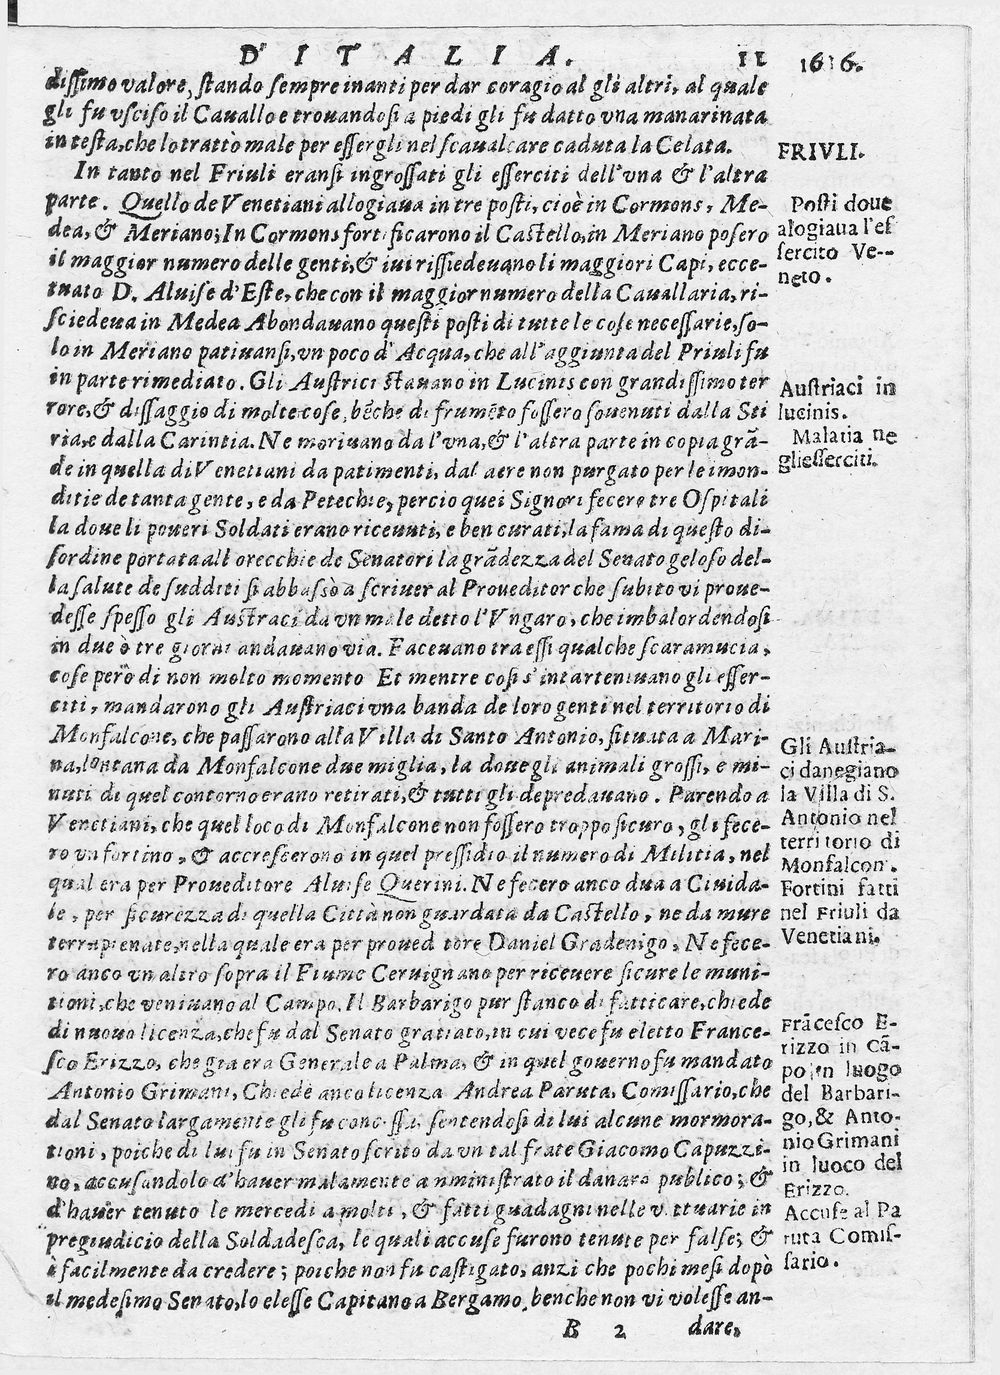 D' I T A L I A. 11
1616.
dissimo valore, stando sempre inanti per dar coragio al gli altri, al quale
gli fu vsciso il Cauallo e trouandosi a piedi gli fu datto vna manarinata
in testa, che lo trattò male per essergli nel scaualcare caduta la Celata.
FRIVLI.
In tanto nel Friuli eransi ingrossati gli esserciti dell'vna & l'altra
parte. Quello de Venetiani allogiaua in tre posti, cioè in Cormons, Me-
dea, & Meriano; In Cormons fortificarono il Castello, in Meriano posero
il maggior numero delle genti, & iui rissiedeuano li maggiori Capi, ecce-
tuato D. Aluise d'Este, che con il maggior numero della Cauallaria, ri-
sciedeua in Medea Abondauano questi posti di tutte le cose necessarie, so-
lo in Meriano patiuansi, vn poco d'Acqua, che all'aggiunta del Priuli fu
in parte rimediato. Gli Austrici stauano in Lucinis con grandissimo ter
rore, & dissaggio di molte cose, bẽche di frumẽto fossero souenuti dalla Sti
ria, e dalla Carintia. Ne moriuano da l'vna, & l'altra parte in copia grã-
de in quella di Venetiani da patimenti, dal aere non purgato per le imon-
ditie de tanta gente, e da Petechie, percio quei Signori fecero tre Ospitali
la doue li poueri Soldati erano riceuuti, e ben curati, la fama di questo di-
sordine portata all orecchie de Senatori la grãdezza del Senato geloso del-
la salute de sudditi si abbassò a scriuer al Proueditor che subito vi proue-
desse spesso gli Austraci da vn male detto l'Vngaro, che imbalordendosi
in due ò tre giorni andauano via. Faceuano tra essi qualche scaramucia,
cose però di non molto momento Et mentre cosi s'intarteniuano gli esser-
citi, mandarono gli Austriaci vna banda de loro genti nel territorio di
Monfalcone, che passarono alla Villa di Santo Antonio, situata a Mari-
na, lontana da Monfalcone due miglia, la doue gli animali grossi, e mi-
nuti di quel contorno erano retirati, & tutti gli depredauano. Parendo a
Venetiani, che quel loco di Monfalcone non fossero troppo sicuro, gli fece-
ro vn fortino, & accrescerono in quel pressidio il numero di Militia, nel
qual era per Proueditore Aluise Querini. Ne fecero anco dua a Ciuida-
le, per sicurezza di quella Città non guardata da Castello, ne da mure
terrapienate, nella quale era per proued tore Daniel Gradenigo, Ne fece-
ro anco vn altro sopra il Fiume Ceruignano per riceuere sicure le muni-
tioni, che veniuano al Campo. Il Barbarigo pur stanco di fatticare, chiede
di nuouo licenza, che fu dal Senato gratiato, in cui vece fu eletto France-
sco Erizzo, che gia era Generale a Palma, & in quel gouerno fu mandato
Antonio Grimani, Chiede anco licenza Andrea Paruta. Comissario, che
dal Senato largamente gli fu concessa, sentendosi di lui alcune mormora-
tioni, poiche di lui fu in Senato scrito da vn tal frate Giacomo Capuzzi-
no, accusandolo d'hauer malamente amministrato il danaro publico; &
d'hauer tenuto le mercedi a molti, & fatti guadagni nelle vittuarie in
pregiudicio della Soldadesca, le quali accuse furono tenute per false; &
è facilmente da credere; poiche non fu castigato, anzi che pochi mesi dopò
il medesimo Senato, lo elesse Capitano a Bergamo, benche non vi volesse an-
B 2 dare,
Posti doue
alogiaua l'es
sercito Ve--
neto.
Austriaci in
lucinis.
Malatia ne
gliesserciti.
Gli Austria-
ci danegiano
la Villa di S.
Antonio nel
territorio di
Monfalcon.
Fortini fatti
nel Friuli da
Venetiani.
Frãcesco E-
rizzo in cã-
po in luogo
del Barbari-
go, & Anto-
nio Grimani
in luoco del
Erizzo.
Accuse al Pa
ruta Comis-
sario.